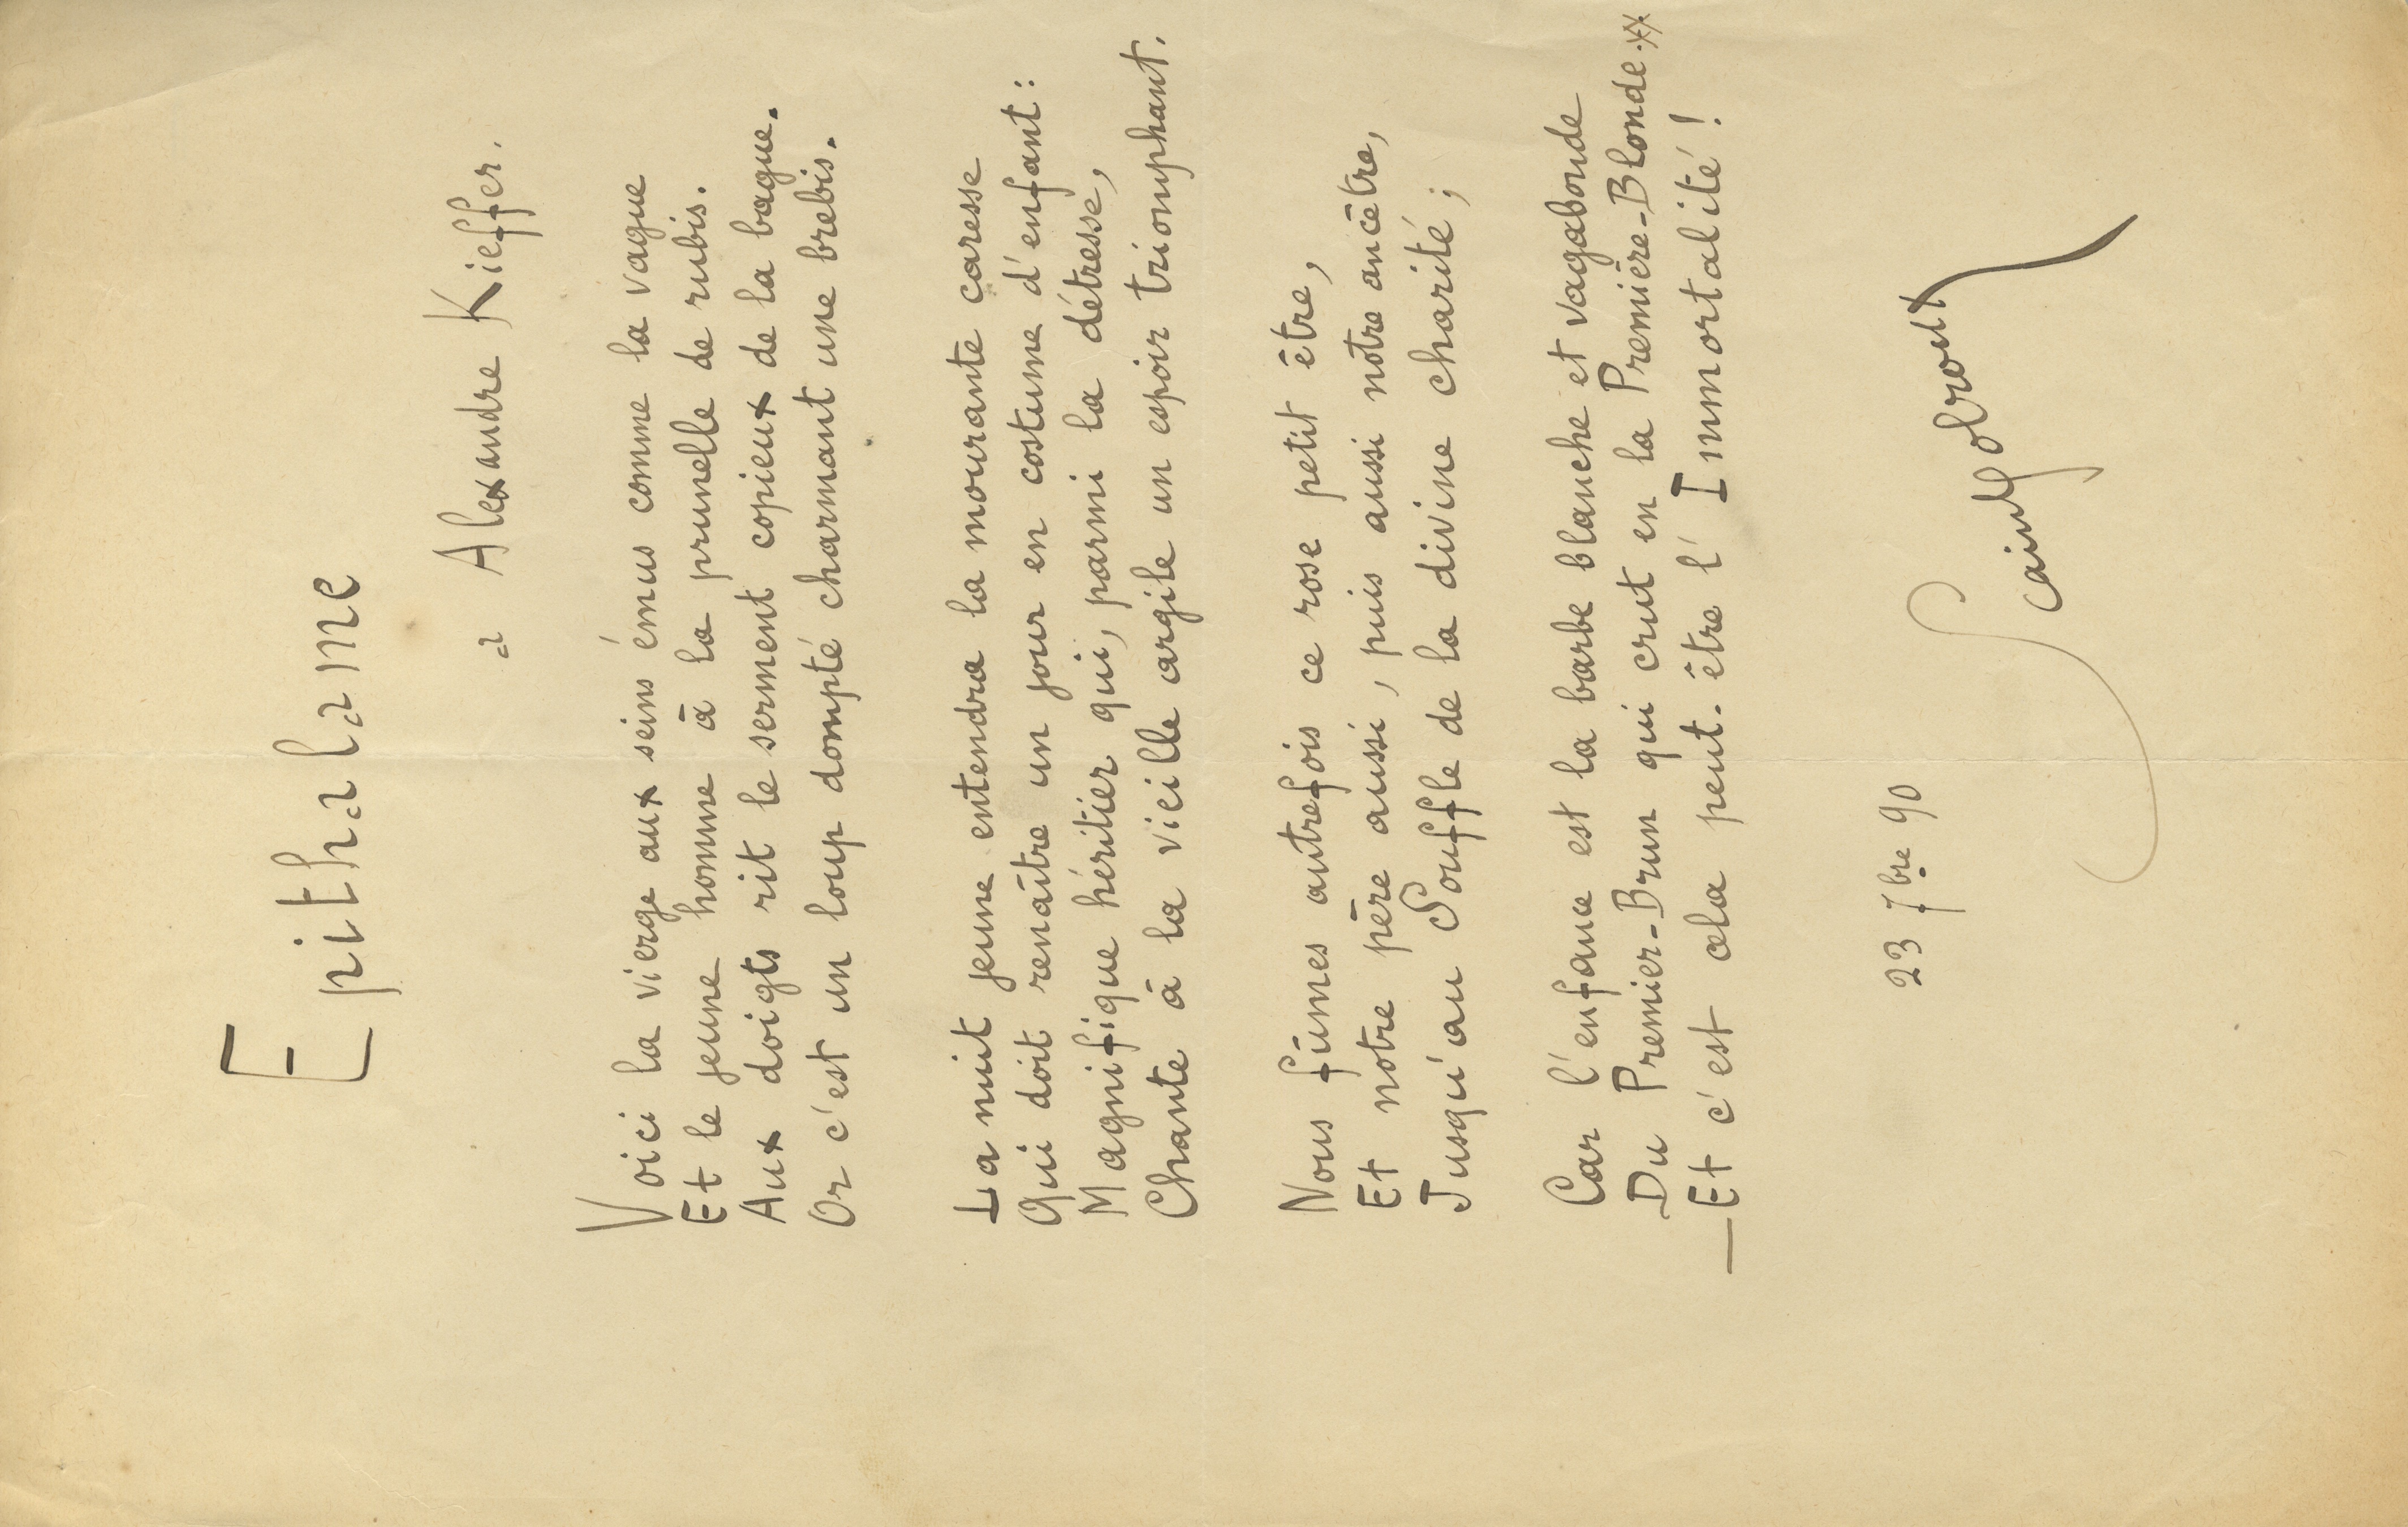 Epithalame
a Alexandre Kieffer.
Voici la vierge aux seins émus comme la vague
Et le jeune homme à la prunelle de rubis.
Aux doigts rit le serment copieux de la bague.
Or c'est un loup dompté charmant une brebis.
La nuit jeune entendra la mourante caresse
Qui doit renaître un jour en costume d'enfant:
Magnifique héritier qui, parmi la détresse,
Chante à la vieille argile un espoir triomphant.
Nous fûmes autrefois ce rose petit être,
Et notre père aussi, puis aussi notre ancêtre,
Jusqu'au Souffle de la divine charité;
Car l'enfance est la barbe blanche et vagabonde
Du Premier-Brun qui crut en la Première-Blonde..
— Et c'est cela peut-être l'Immortalité!
23 7bre 90
Saint Pol Roux